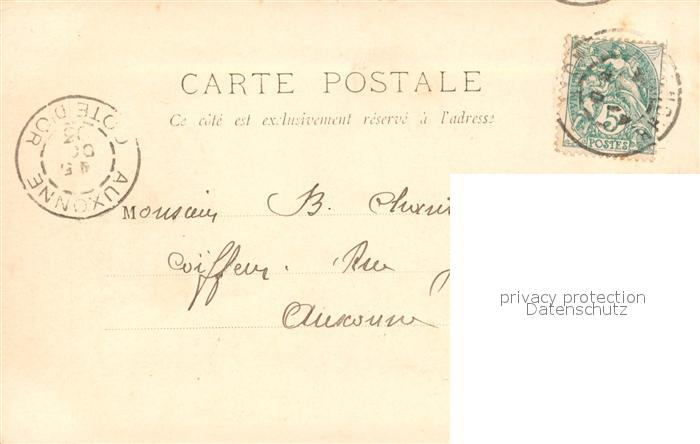 CARTE POSTALE
Ce côté est exclusivement réservé à l'adresse
5
POSTES
AUXONNE
COTE D'OR
Monsieur B.
Coiffeur. Rue
Auxonne
privacy protection
Datenschutz